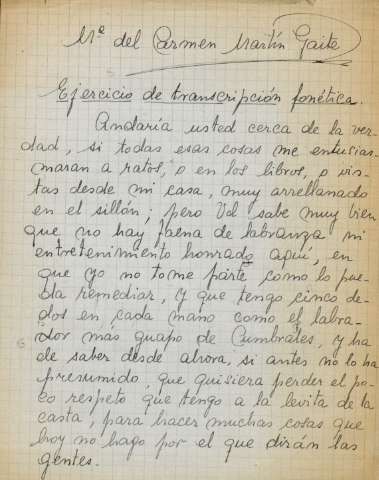 Mª del Carmen Martín Gaite
Ejercicio de transcripción fonética.
Andaría usted cerca de la ver-
dad, si todas esas cosas me entusias-
maran a ratos, o en los libros, o vis-
tas desde mi casa, muy arrellanado
en el sillón, pero Vd sabe muy bien
que no hay faena de labranza ni
entretenimiento honrado aquí, en
que yo no tome parte como lo pue-
da remediar, y que tengo cinco de-
dos en cada mano como el labra-
dor más guapo de Cumbrales, y ha
de saber desde ahora, si antes no lo ha
presumido, que quisiera perder el po-
co respeto que tengo a la levita de la
casta, para hacer muchas cosas que
hoy no hago por el que dirán las
gentes.